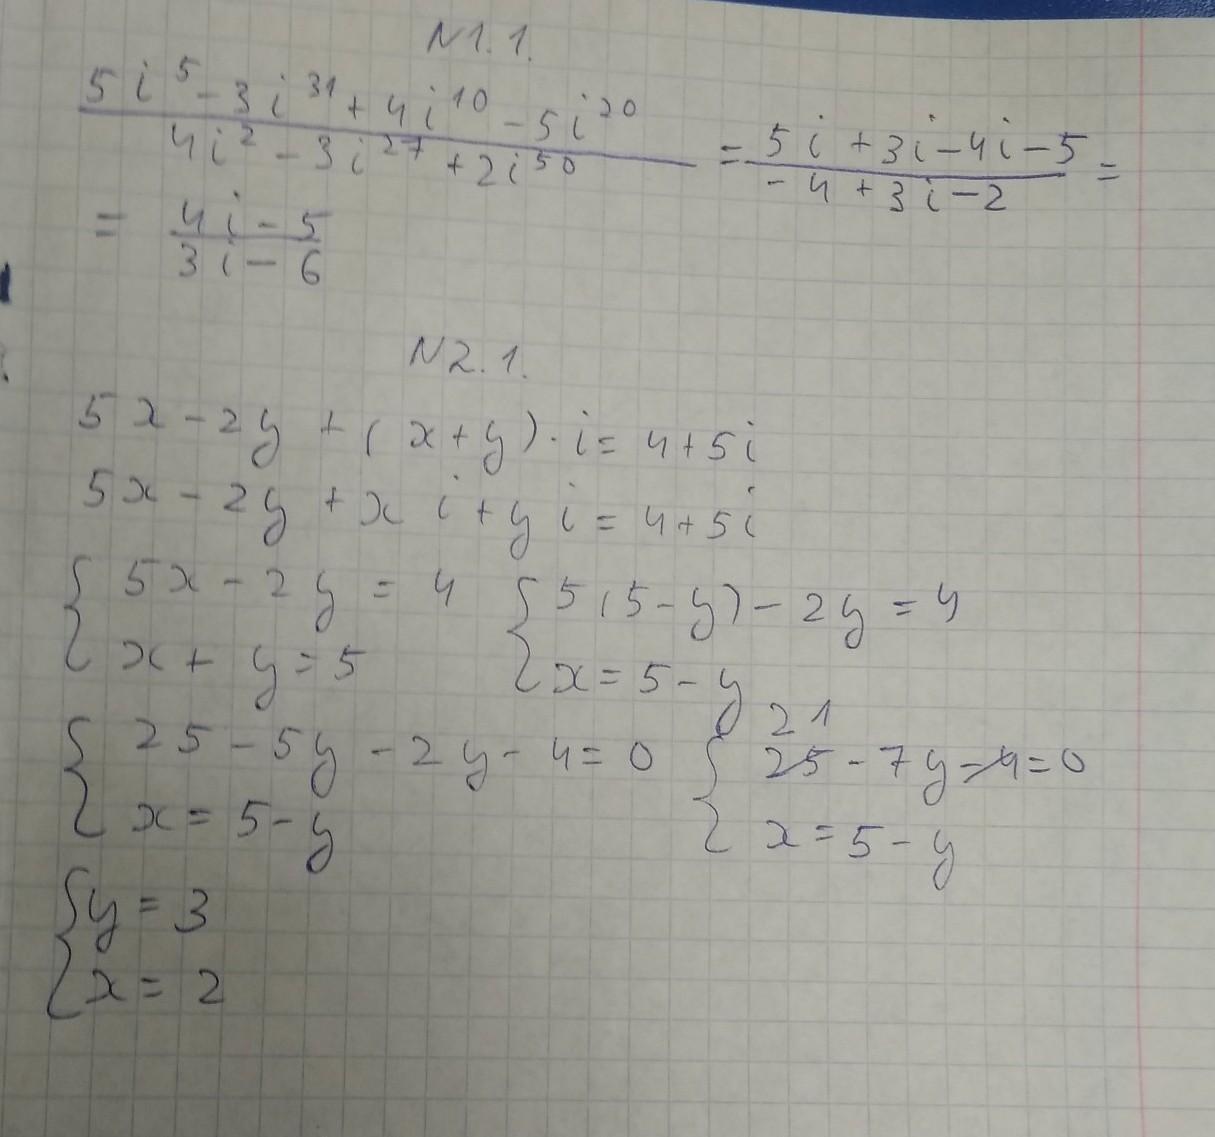 N1.1.
5i^5 - 3i^31 + 4i^10 - 5i^20 / 4i^2 - 3i^27 + 2i^50 = 5i + 3i - 4i - 5 / -4 + 3i - 2 =
= 4i - 5 / 3i - 6
N2.1.
5x - 2y + (x + y) · i = 4 + 5i
5x - 2y + xi + yi = 4 + 5i
{ 5x - 2y = 4 { 5(5 - y) - 2y = 4
x + y = 5 x = 5 - y
21
{ 25 - 5y - 2y - 4 = 0 { 25 - 7y - 4 = 0
x = 5 - y x = 5 - y
{ y = 3
x = 2